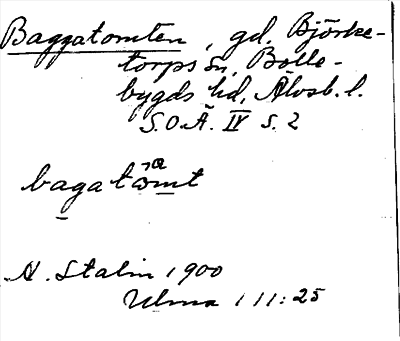 Baggatomten, gd, Björke-
torps sn, Bolle-
bygds hd, Älvsb. l.
S.O.Ä. IV s. 2
bagatɷmt
A. Stalin 1900
Ulma 111:25